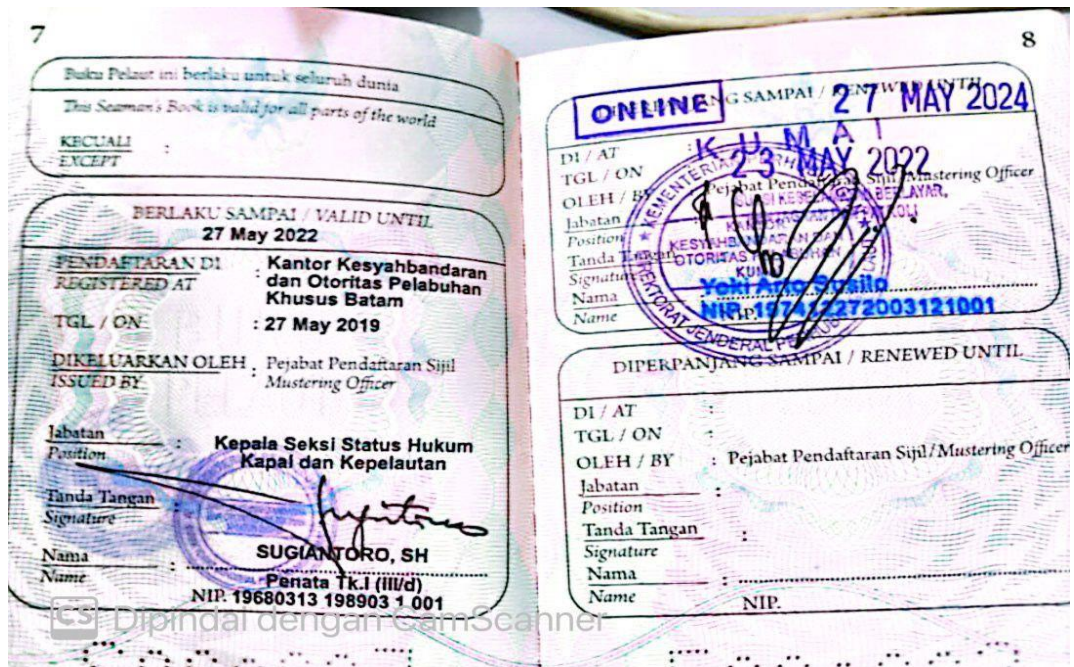 7
Buku Pelaut ini berlaku untuk seluruh dunia
This Seaman's Book is valid for all parts of the world
KECUALI :
EXCEPT
BERLAKU SAMPAI / VALID UNTIL
27 May 2022
PENDAFTARAN DI : Kantor Kesyahbandaran
REGISTERED AT dan Otoritas Pelabuhan
Khusus Batam
TGL / ON : 27 May 2019
DIKELUARKAN OLEH : Pejabat Pendaftaran Sijil
ISSUED BY Mustering Officer
Jabatan : Kepala Seksi Status Hukum
Position Kapal dan Kepelautan
Tanda Tangan :
Signature
Nama : SUGIANTORO, SH
Name Penata Tk.I (III/d)
NIP. 19680313 198903 1 001
CS Dipindai dengan CamScanner
8
SAMPAI / RENEWED UNTIL
ONLINE 27 MAY 2024
DI / AT : KUMAI
TGL / ON 23 MAY 2022
OLEH / BY Pejabat Sijil/Mustering Officer
Jabatan
Position
Tanda Tangan
Signature
Nama Yoki Ario Susilo
Name NIP.
KEMENTERIAN
DIREKTORAT JENDERAL
DIPERPANJANG SAMPAI / RENEWED UNTIL
DI / AT :
TGL / ON :
OLEH / BY : Pejabat Pendaftaran Sijil/Mustering Officer
Jabatan :
Position
Tanda Tangan :
Signature
Nama :
Name NIP.